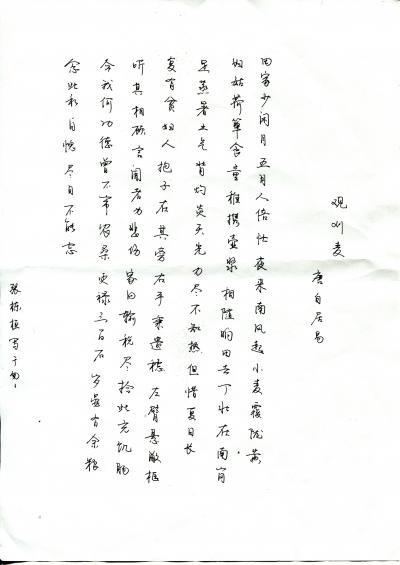 观刈麦
唐白居易
田家少闲月五月人倍忙夜来南风起小麦覆陇黄
妇姑荷箪食童稚携壶浆相随饷田去丁壮在南冈
足蒸暑土气背灼炎天光力尽不知热但惜夏日长
复有贫妇人抱子在其旁右手秉遗穗左臂悬敝筐
听其相顾言闻者为悲伤家田输税尽拾此充饥肠
今我何功德曾不事农桑吏禄三百石岁晏有余粮
念此私自愧尽日不能忘
张栋恒写于